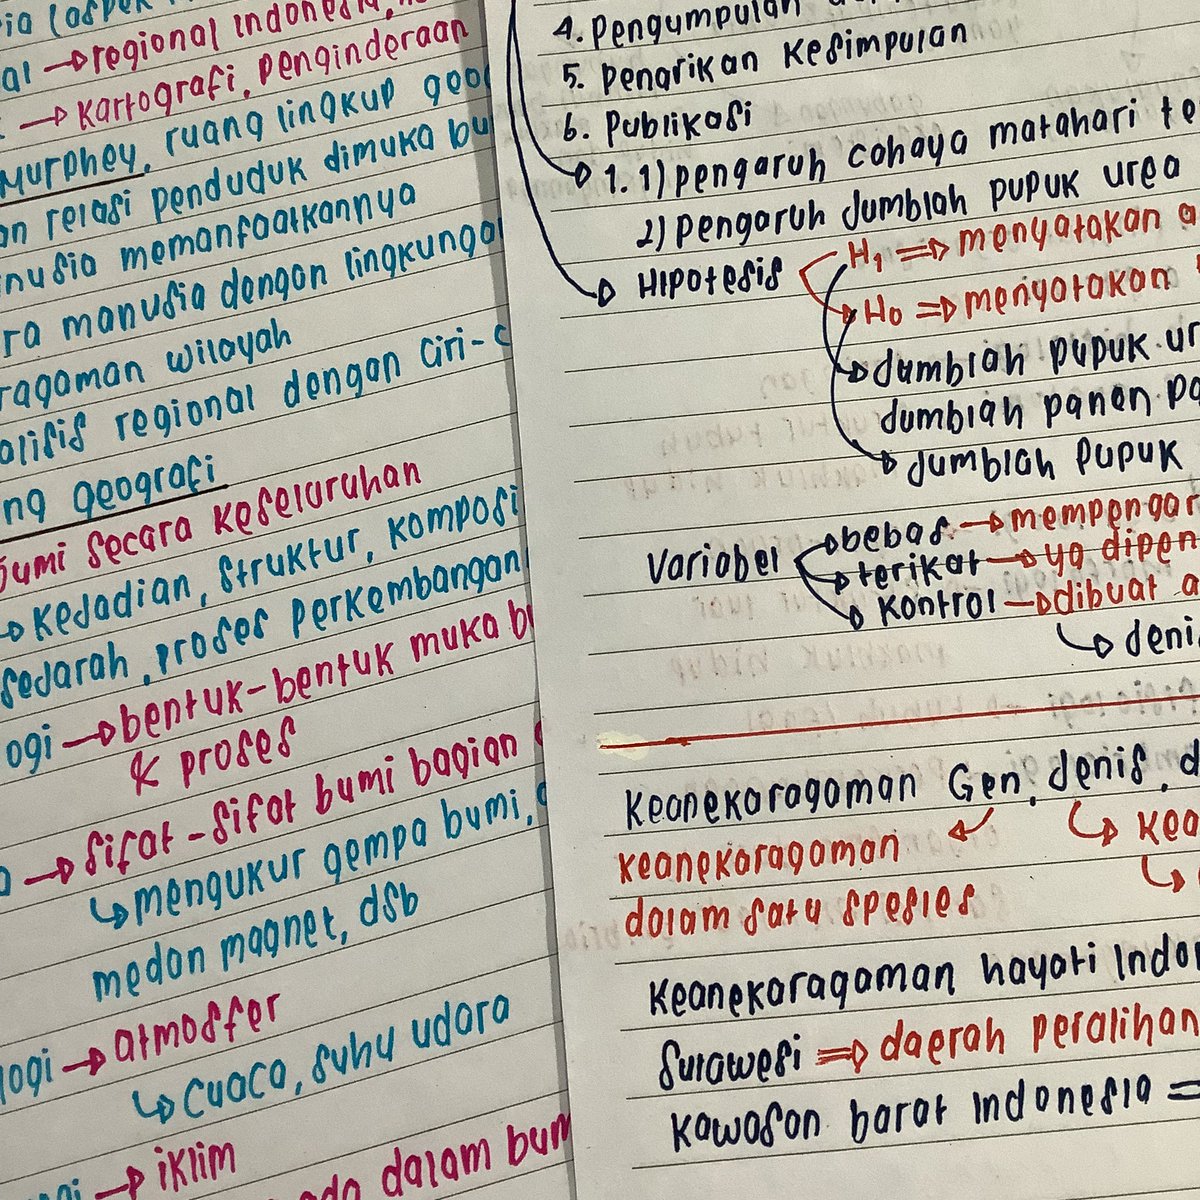 regional Indonesia,
→ Kartografi, penginderaan
Murphey, ruang lingkup
relasi penduduk dimuka bu
memanfaatkannya
manusia dengan lingkunga
ragaman wilayah
regional dengan ciri-c
geografi
bumi secara keseluruhan
→ kejadian, struktur, komposi
sejarah, proses perkembangan
ogi → bentuk-bentuk muka bu
& proses
→ sifat-sifat bumi bagian
↳ mengukur gempa bumi,
medan magnet, dsb
logi → atmosfer
↳ cuaca, suhu udara
→ iklim
dalam bum
4. Pengumpulan
5. Penarikan Kesimpulan
6. Publikasi
→ 1. 1) pengaruh cahaya matahari te
2) pengaruh jumblah pupuk urea
→ Hipotesis
H₁ ⇒ menyatakan a
H₀ ⇒ menyatakan
→ jumblah pupuk ur
jumblah panen pa
→ jumblah pupuk
Variabel
→ bebas → mempengar
→ terikat → yg dipen
→ kontrol → dibuat
↳ deni
Keanekaragaman Gen, jenis, d
keanekaragaman
↳ kea
dalam satu spesies
Keanekaragaman hayati Indo
Sulawesi ⇒ daerah peralihan
Kawasan barat Indonesia =